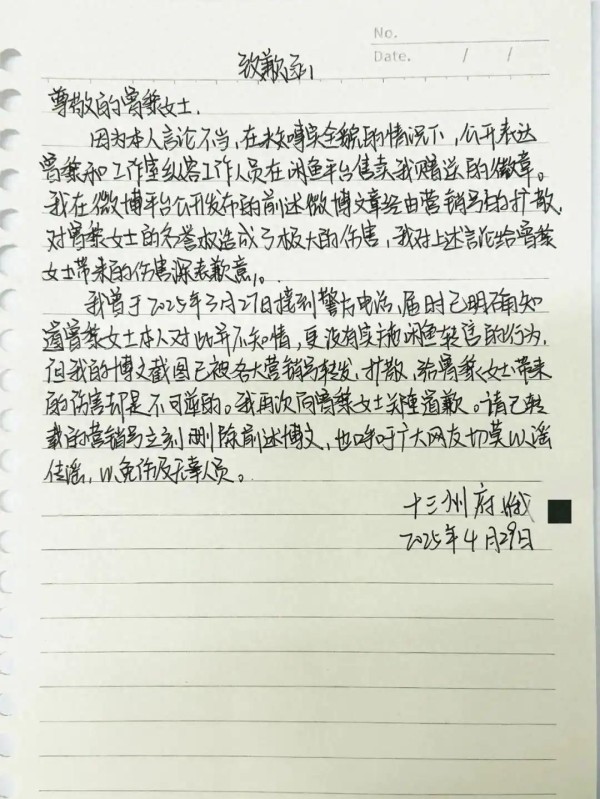 No.
Date. / /
致歉函
尊敬的曾黎女士.
因为本人言论不当,在未嘑实全貌的情况下,公开表达
曾黎和工作室纵容工作人员在闲鱼平台售卖我赠送的徽章。
我在微博平台公开发布的前述微博文章经由营销号的扩散,
对曾黎女士的名誉权造成了极大的伤害,我对上述言论给曾黎
女士带来的伤害深表歉意。
我曾于2025年3月27日接到警方电话,届时已明确知
道曾黎女士本人对此并不知情,更没有实施闲鱼转售的行为,
但我的博文截图已被各大营销号转发、扩散,给曾黎女士带来
的伤害却是不可逆的。我再次向曾黎女士郑重道歉。请已转
载的营销号立刻删除前述博文,也呼吁广大网友切莫以谣
传谣,以免涉及无辜人员。
十三州府
2025年4月29日